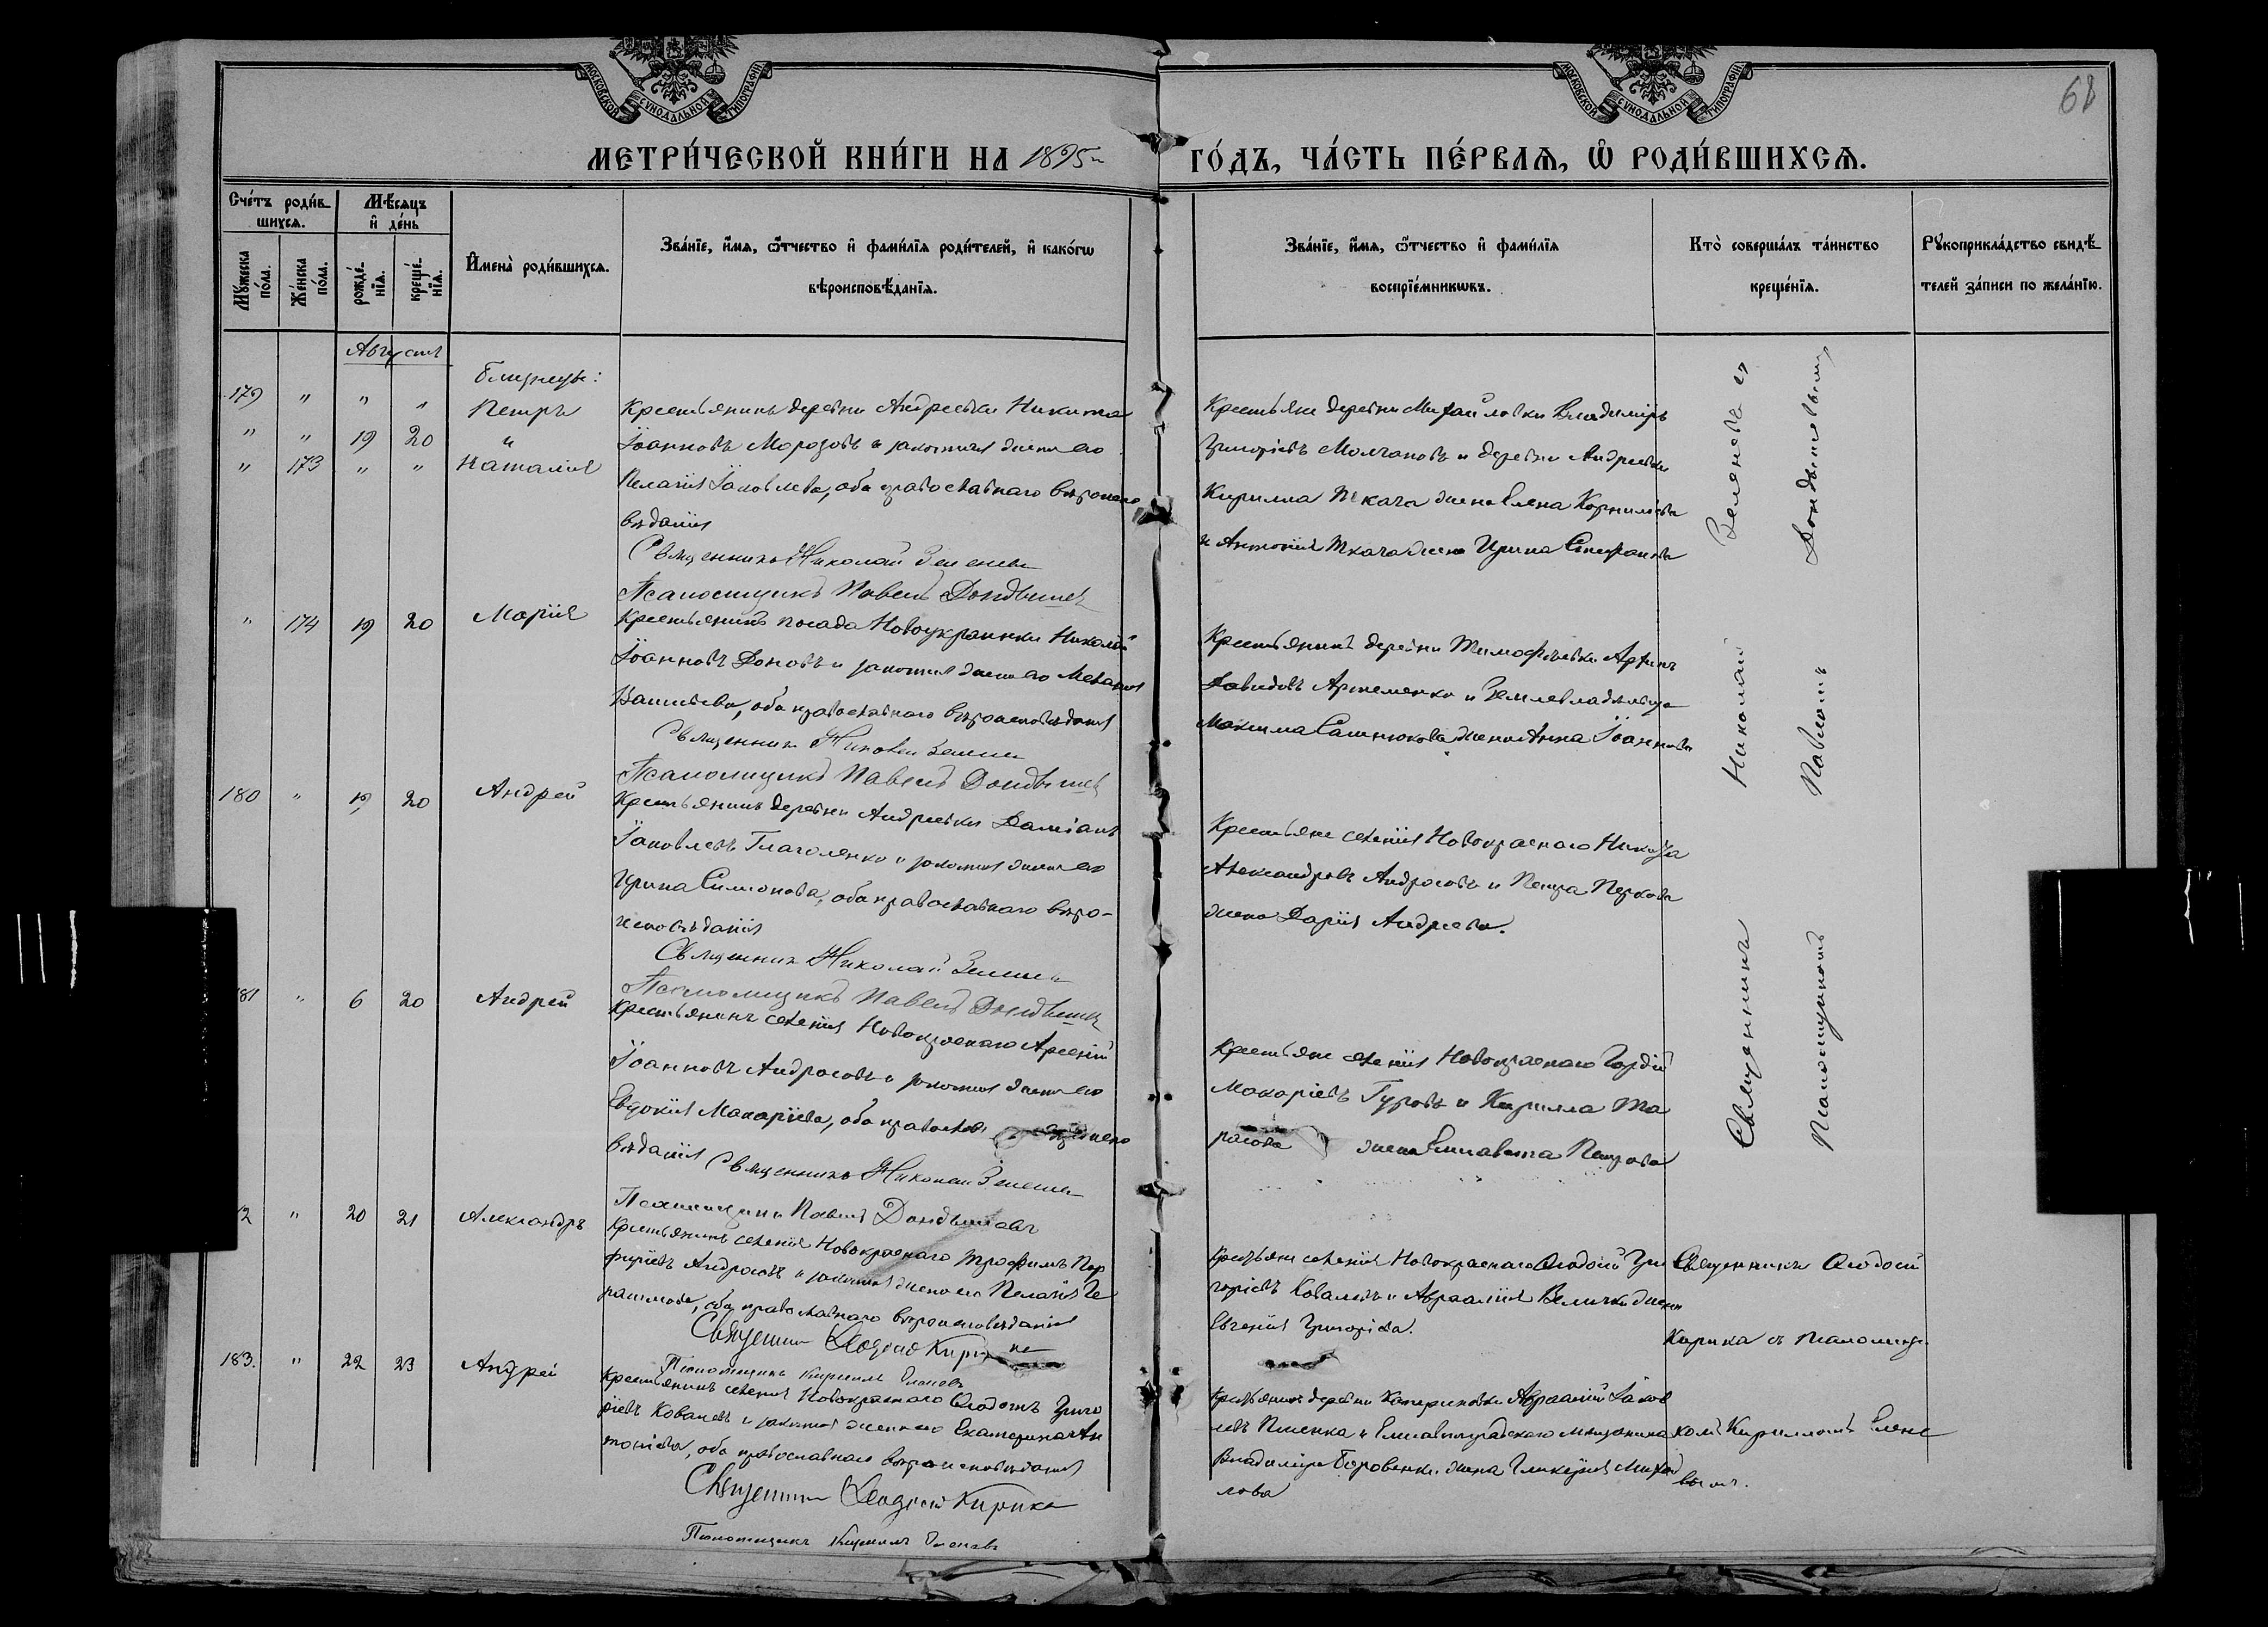 МОСКОВСКОЙ СѴНОДАЛЬНОЙ ТИПОГРАФІИ
МОСКОВСКОЙ СѴНОДАЛЬНОЙ ТИПОГРАФІИ
МЕТРИ́ЧЕСКОЙ КНИ́ГИ НА 1895 й ГО́ДЪ, ЧА́СТЬ ПЕ́РВАѦ, Ѡ҆ РОДИ́ВШИХСѦ.
Сче́тъ роди́в-
шихся.
Мꙋ́жеска по́ла.
Же́нска по́ла.
Мѣ́сяцъ
и҆ де́нь
рожде́-
нїя.
креще́-
нїя.
И҆мена̀ роди́вшихся.
Зва́нїе, и҆́мя, ѻ҆́тчество и҆ фами́лїя роди́телей, и҆ како́гѡ
вѣроисповѣ́данїя.
Зва́нїе, и҆́мя, ѻ҆́тчество и҆ фами́лїя
воспрїе́мникѡвъ.
Кто̀ соверша́лъ та́инство
креще́нїя.
Рꙋкоприкла́дство свидѣ́-
телей за́писи по жела́нїю.
Августъ
Близнецы:
179 " " " Петръ
" " 19 20 и
" 173 " " Наталія
Крестьянинъ деревни Андреевки Никита
Іоанновъ Морозовъ и законная жена его
Пелагія Іаковлева, оба православнаго вѣроиспо
вѣданія
Священникъ Николай Зеленев
Псаломщикъ Павелъ Дондышев
Крестьяне деревни Михайловки Владиміръ
Григоріевъ Молчановъ и деревни Андреевки
Кирилла Ткача жена Елена Корнилова
и Антонія Ткача жена Ирина Стефанова
" 174 19 20 Марія
Крестьянинъ посада Новоукраинки Николай
Іоанновъ Доновъ и законная жена его Меланія
Васильева, оба православнаго вѣроисповѣданія
Священник Николай Зелен
Псаломщикъ Павелъ Дондышев
Крестьянинъ деревни Тимофѣевки
Давидовъ Артеменко и землевладѣльца
Максима жена Анна Іоаннова
180 " 19 20 Андрей
Крестьянинъ деревни Андреевки Даміанъ
Іаковлевъ Глаголенко и законная жена его
Ирина Симонова, оба православнаго вѣро-
исповѣданія
Священник Николай Зелен
Псаломщикъ Павелъ Дондышев
Крестьяне селенія Новокраснаго Никита
Александровъ Андросовъ и Петра
жена Дарія Андреева.
181 " 6 20 Андрей
Крестьянинъ селенія Новокраснаго Арсеній
Іоанновъ Андросовъ и законная жена его
Евдокія Макаріева, оба православ
вѣданія Священникъ Николай Зелене
Псаломщикъ Павелъ Дондышевъ
Крестьяне селенія Новокраснаго Гордій
Макаріевъ Гуровъ и Кирилла Та
расова жена Елисавета Петрова
Священникъ Николай Зеленевъ съ
Псаломщикомъ Павломъ Дондышевымъ
2 " 20 21 Александръ
Крестьянинъ селенія Новокраснаго Трофимъ Пор
фиріевъ Андросовъ и законная жена его Пелагія Ге
расимова, оба православнаго вѣроисповѣданія
Священник Ѳеодосій Кирика
Псаломщикъ Кириллъ Еленевъ
Крестьяне селенія Новокраснаго Ѳеодосій Гри
горіевъ Ковалевъ и Авраамія Велички жена
Евгенія Григоріева.
Священникъ Ѳеодосій
Кирика съ Псаломщи
комъ Кирилломъ Елене
вымъ.
183. " 22 23 Андрей
Крестьянинъ селенія Новокраснаго Ѳеодотъ Григо
ріевъ Ковалевъ и законная жена его Екатерина Ан
тоніева, оба православнаго вѣроисповѣданія
Священник Ѳеодосій Кирика
Псаломщикъ Кириллъ Еленевъ
Крестьянинъ деревни Катериновки Авраамій Іаков
левъ и Елисаветградскаго мѣщанина
Владиміра Боровенки жена Гликерія Михай
лова